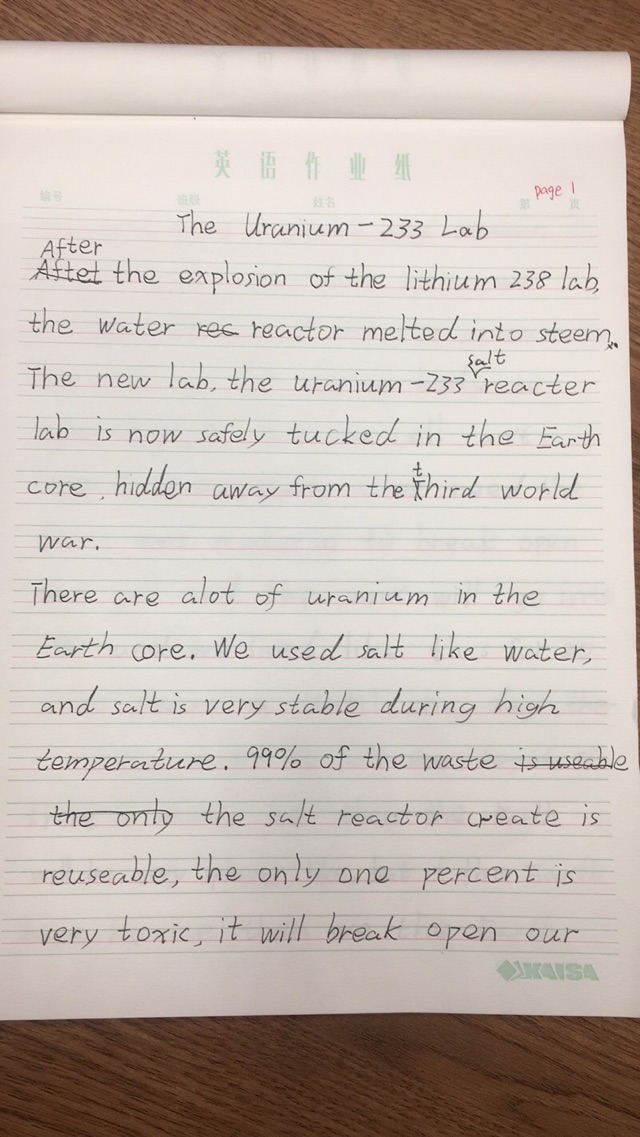 英语作业纸
page 1
编号 班级 姓名 第 页
The Uranium-233 Lab
After
Aftet the explosion of the lithium 238 lab,
the water rec reactor melted into steem.
salt
The new lab, the uranium-233 reacter
lab is now safely tucked in the Earth
core, hidden away from the third world
war.
There are alot of uranium in the
Earth core. We used salt like water,
and salt is very stable during high
temperature. 99% of the waste is useable
the only the salt reactor create is
reuseable, the only one percent is
very toxic, it will break open our
KAISA